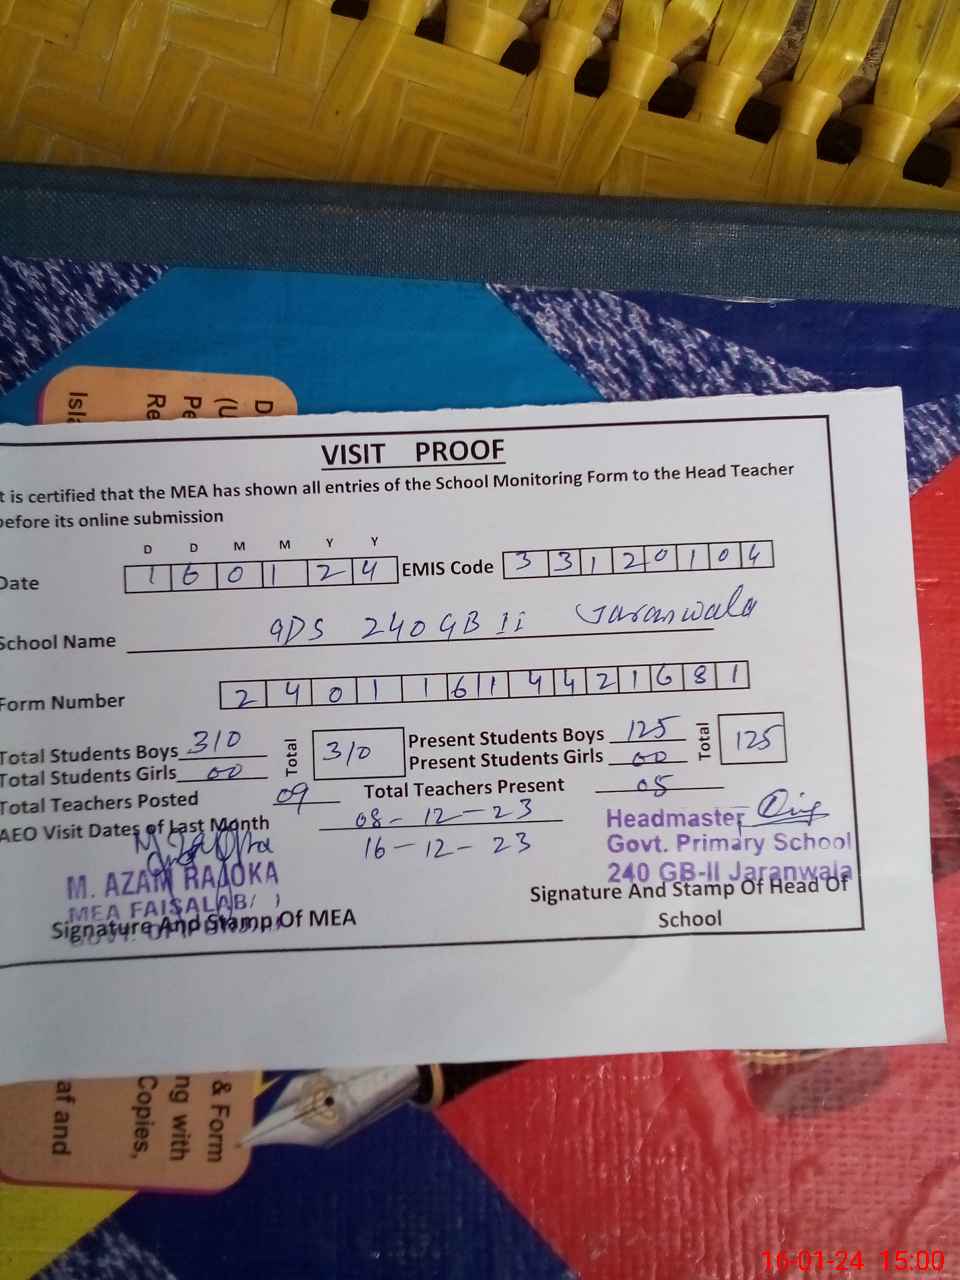 D
(U
Pe
Re
Isla
VISIT PROOF
t is certified that the MEA has shown all entries of the School Monitoring Form to the Head Teacher
before its online submission
D D M M Y Y
Date 1 6 0 1 2 4 EMIS Code 3 3 1 2 0 1 0 4
School Name GPS 240 GB II Jaranwala
Form Number 2 4 0 1 1 6 1 4 4 2 1 6 8 1
Total Students Boys 310 Total 310 Present Students Boys 125 Total 125
Total Students Girls 00 Present Students Girls 00
Total Teachers Posted 09 Total Teachers Present 05
AEO Visit Dates of Last Month 08-12-23
16-12-23
Headmaster
Govt. Primary School
240 GB-II Jaranwala
M. AZAM RAJOKA
MEA FAISALABAD
Signature And Stamp Of MEA
Signature And Stamp Of Head Of
School
& Form
ng with
Copies,
af and
16-01-24 15:00